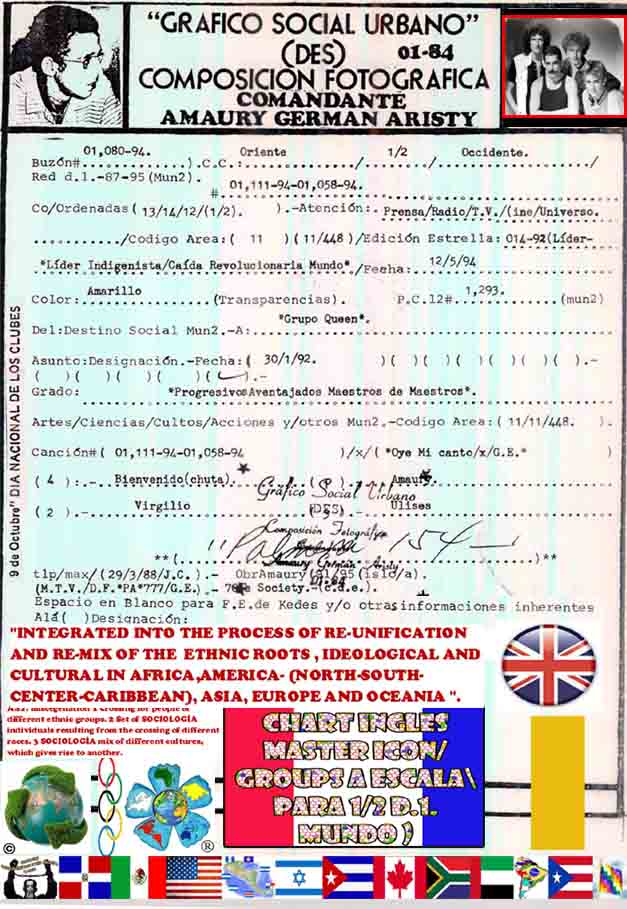 "GRAFICO SOCIAL URBANO"
(DES) 01-84
COMPOSICION FOTOGRAFICA
COMANDANTE
AMAURY GERMAN ARISTY
01,080-94. Oriente 1/2 Occidente.
Buzón#..............).C.C.:............/......./......./................/
Red d.1.-87-95(Mun2).
#01,111-94-01,058-94.
Co/Ordenadas(13/14/12/(1/2). ).-Atención: Prensa/Radio/T.V./(ine/Universo.
........../Codigo Area:( 11 )(11/448)/Edición Estrella: 014-92(Líder-
*Líder Indigenista/Caída Revolucionaria Mundo*/Fecha: 12/5/94
Color: Amarillo (Transparencias). P.C.12# 1,293. (mun2)
*Grupo Queen*.
Del:Destino Social Mun2.-A:
Asunto:Designación.-Fecha:( 30/1/92. )( )( )( )( )( )( ).-
( )( )( )( )( ).-
Grado: *ProgresivosAventajados Maestros de Maestros*.
Artes/Ciencias/Cultos/Acciones y/otros Mun2.-Codigo Area:(11/11/448. ).
Canción#( 01,111-94-01,058-94 )/x/( *Oye Mi canto/x/G.E.* )
( 4 ):.- Bienvenido(chuta).
Gráfico Social Urbano
( 2 ).- Virgilio (DES) Ulises
Composición Fotográfica
154
**( )**
Amaury Germán Aristy
01-84
(M.T.V./D.F.*PA*777/G.E.).-
Society.-(c.d.e.).
Espacio en Blanco para F.E.de Redes y/o otras informaciones inherentes
Alá( )Designación:
9 de Octubre" DIA NACIONAL DE LOS CLUBES
"INTEGRATED INTO THE PROCESS OF RE-UNIFICATION
AND RE-MIX OF THE ETHNIC ROOTS , IDEOLOGICAL AND
CULTURAL IN AFRICA,AMERICA- (NORTH-SOUTH-
CENTER-CARIBBEAN), ASIA, EUROPE AND OCEANIA ".
miscegenation 1 Crossing for people of
different ethnic groups. 2 Set of SOCIOLOGÍA
individuals resulting from the crossing of different
races. 3 SOCIOLOGÍA mix of different cultures,
which gives rise to another.
CHART INGLES
MASTER ICON/
GROUPS A ESCALA\
PARA 1/2 D.1.
MUNDO )
©
®